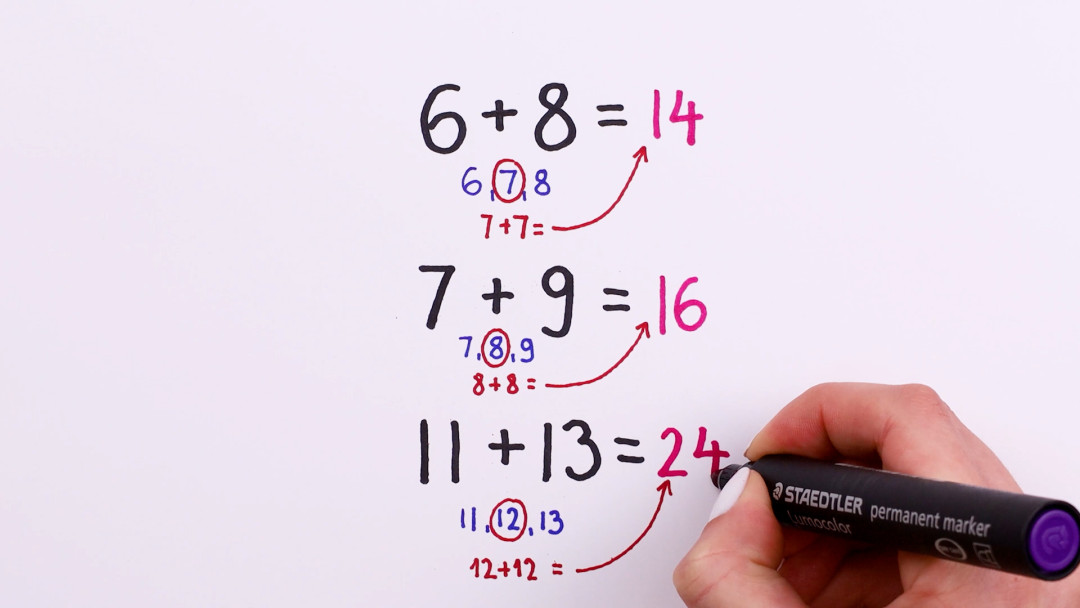 6 + 8 = 14
6, 7, 8
7+7=
7 + 9 = 16
7, 8, 9
8+8=
11 + 13 = 24
11, 12, 13
12+12 =
STAEDTLER permanent marker
Lumocolor